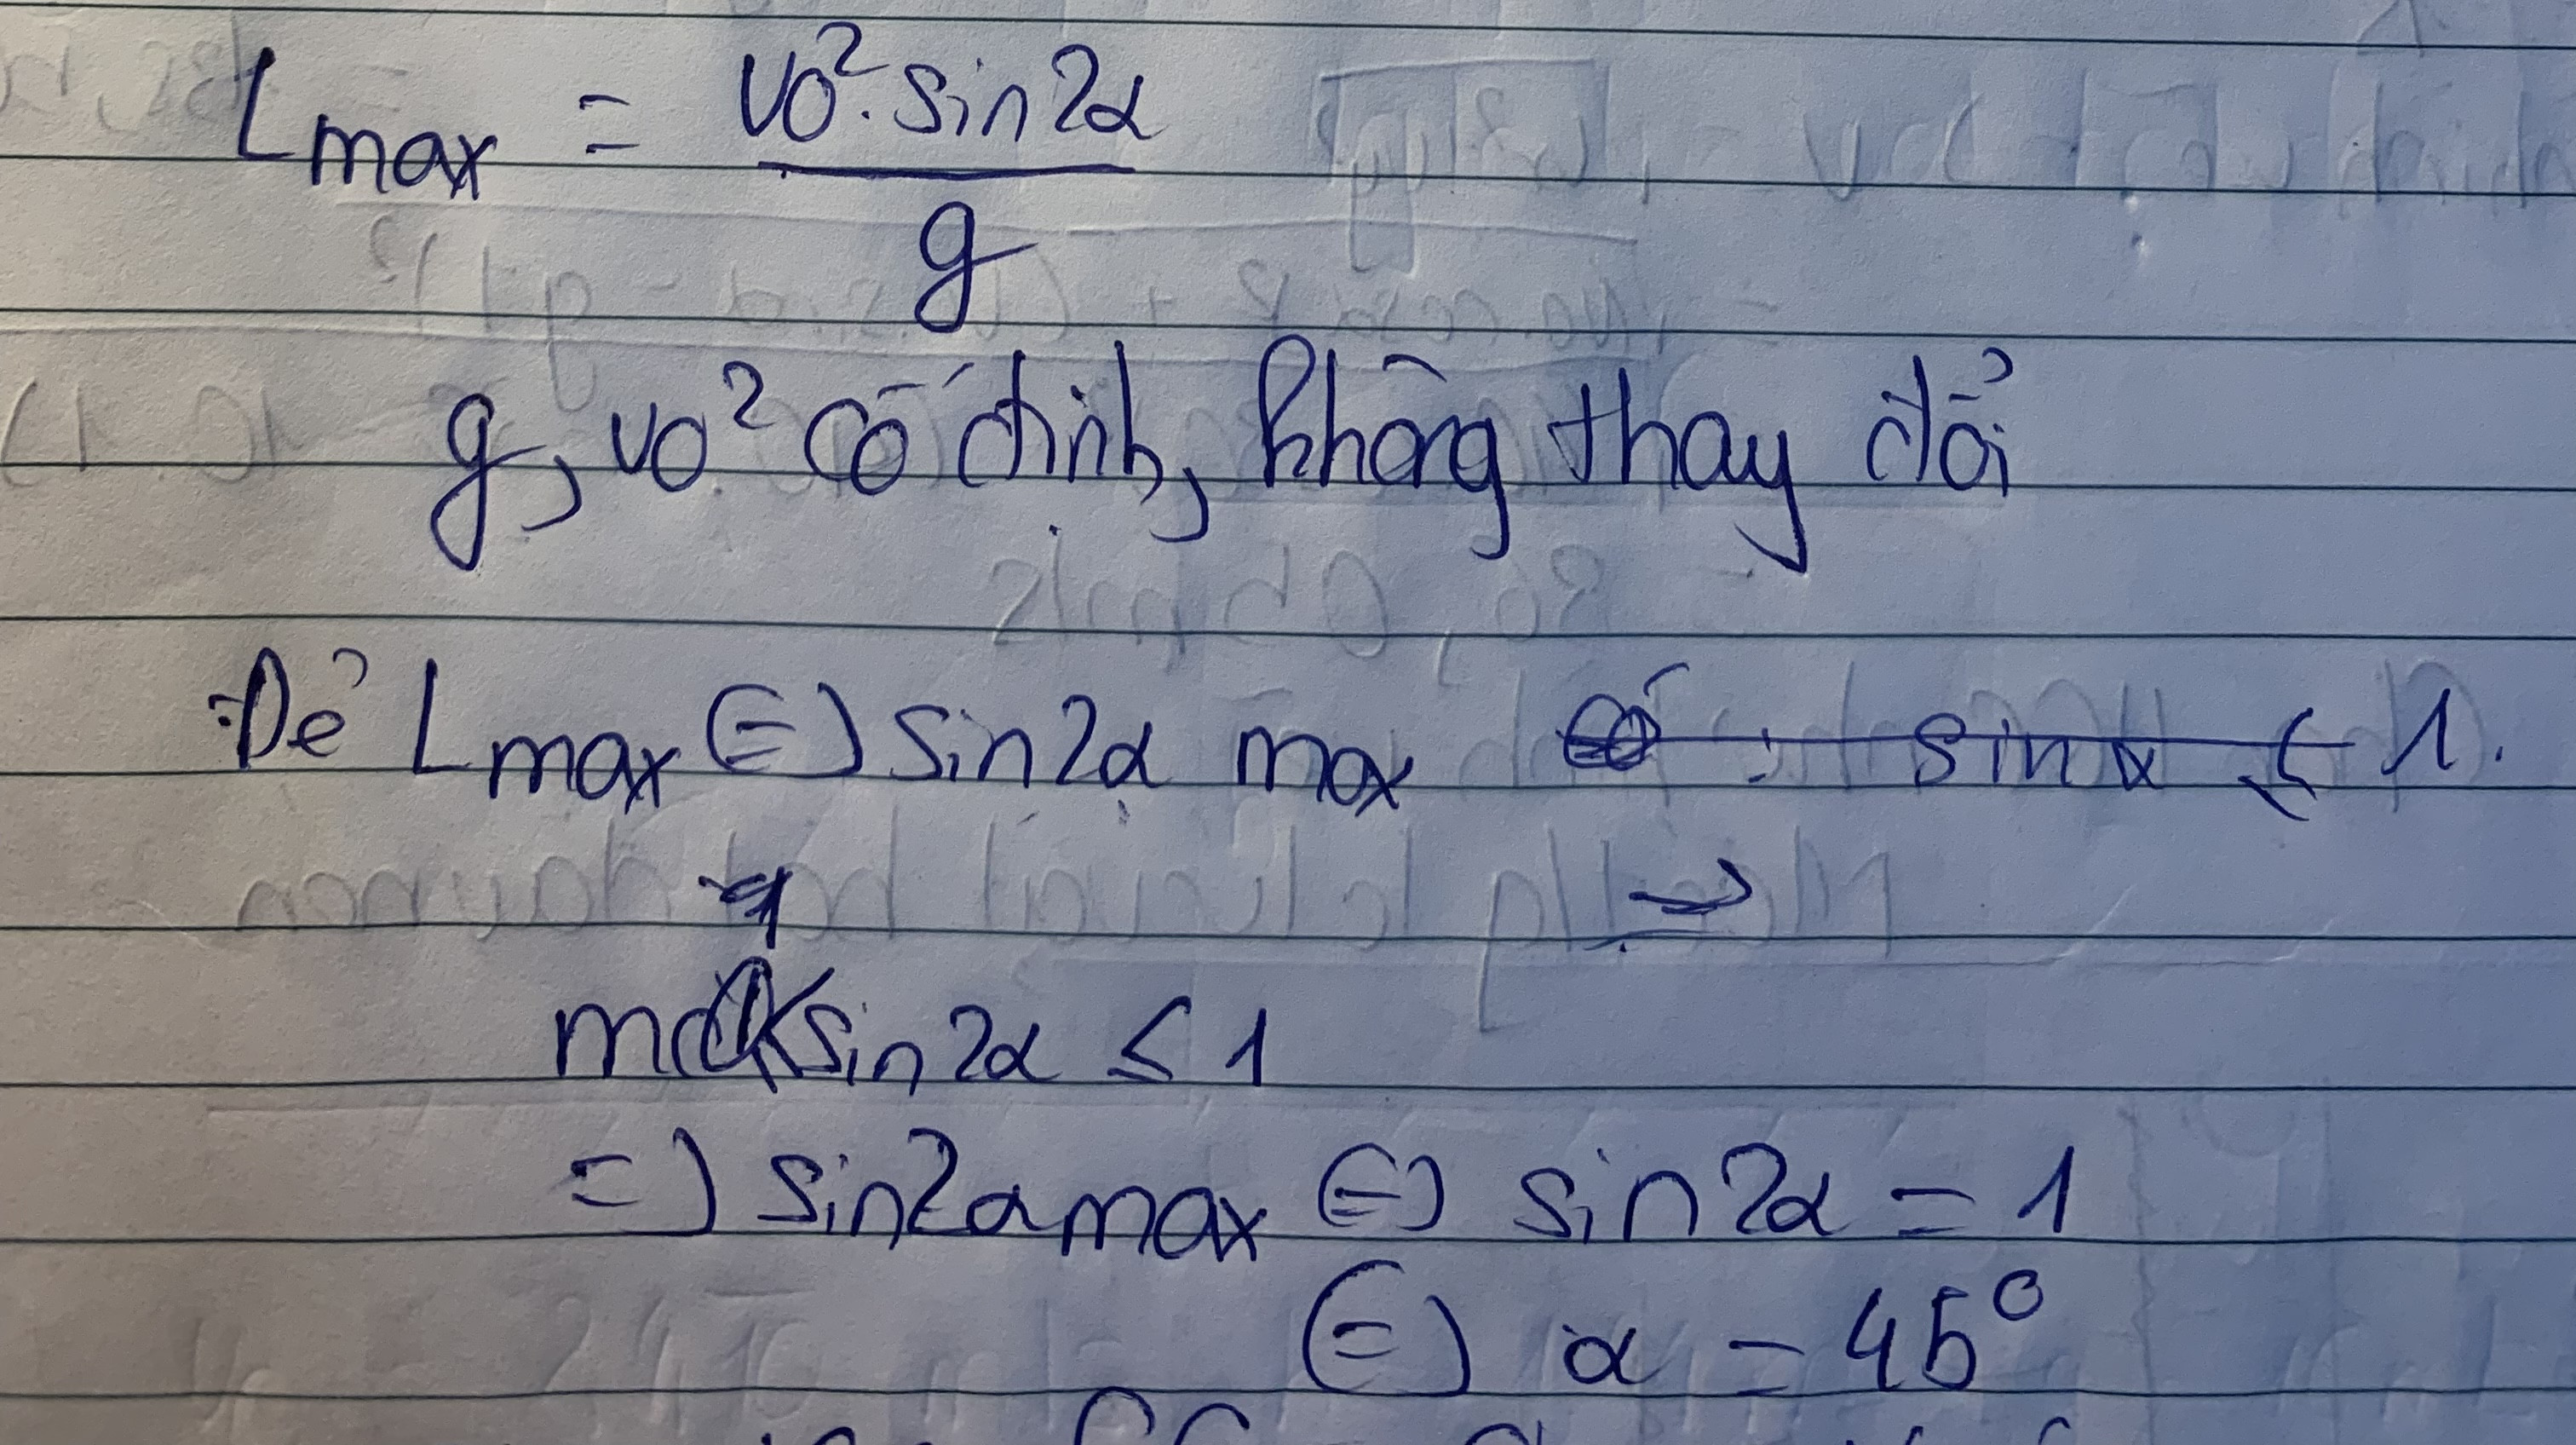 Lmax = v0². sin2α / g
g, v0² cố định, không thay đổi
Để Lmax (=) sin2α max sinα ≤ 1.
mà sin2α ≤ 1
=) sin2α max (=) sin2α = 1
(=) α = 45°